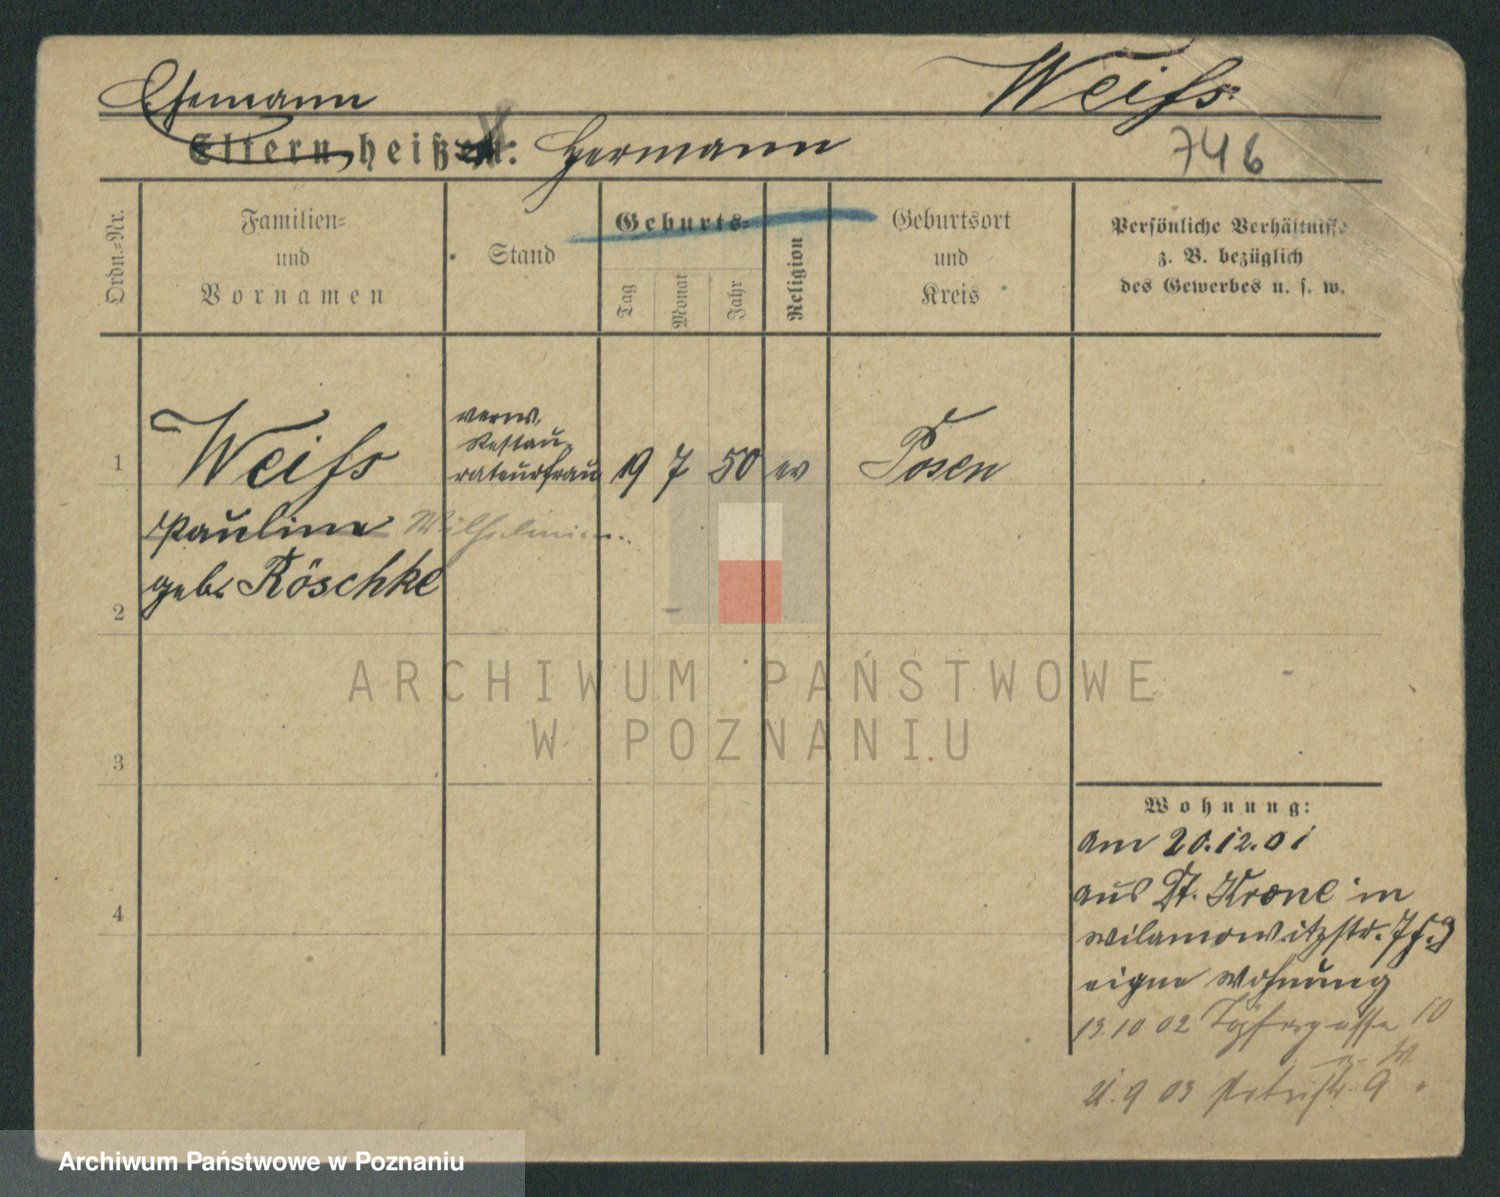 Ehemann
Weiſs
Eltern heißen: Hermann
746
Ordn.-Nr.
Familien-
und
Vornamen
Stand
Geburts-
Tag
Monat
Jahr
Religion
Geburtsort
und
Kreis
Persönliche Verhältnisse
z. B. bezüglich
des Gewerbes u. s. w.
1
Weiſs
verw.
Restau-
rateurfrau
19 7 50 ev
Posen
Pauline Wilhelmine
geb. Röschke
2
ARCHIWUM PAŃSTWOWE
W POZNANIU
3
4
Wohnung:
am 20.12.01
aus Dt. Krone in
Wilamowitzstr. 7
eigne Wohnung
13.10 02 Töpfergasse 10
9 03 Petristr. 9
Archiwum Państwowe w Poznaniu